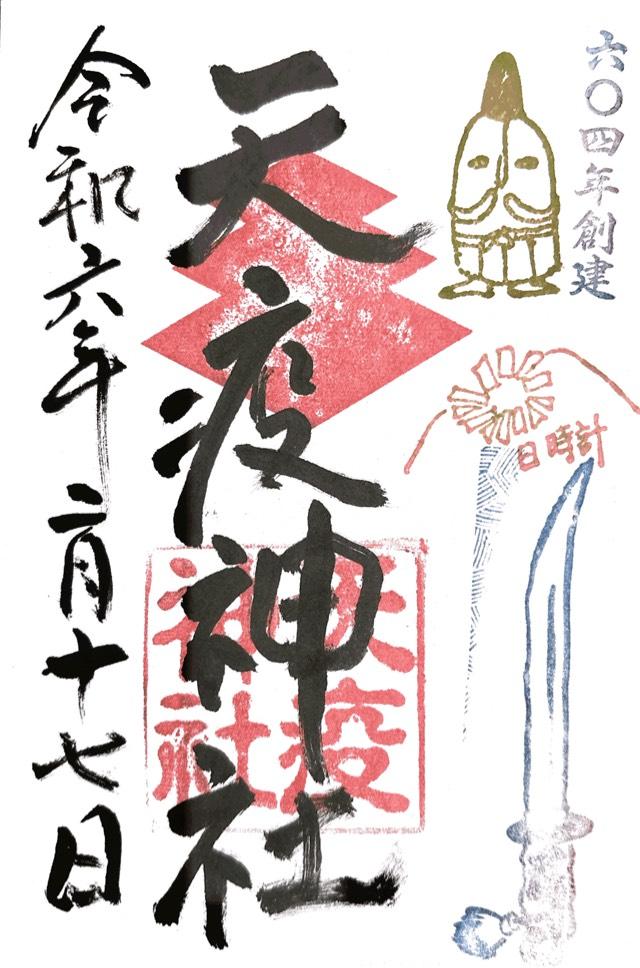 六〇四年創建
日時計
天疫神社
天疫神社
令和六年二月十七日